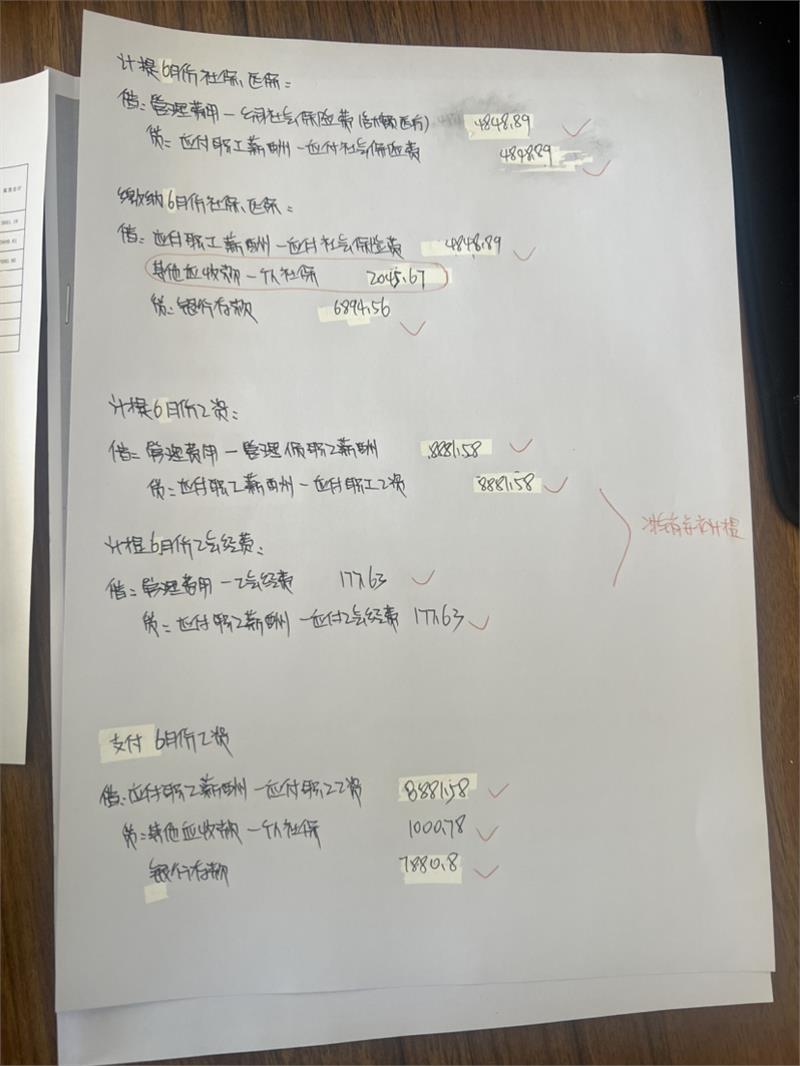 计提6月份社保、医保：
借：管理费用一公司社会保险费（含大额医疗） 4848.89
贷：应付职工薪酬一应付社会保险费 4848.89
缴纳6月份社保、医保：
借：应付职工薪酬一应付社会保险费 4848.89
其他应收款一个人社保 2045.67
贷：银行存款 6894.56
计提6月份工资：
借：管理费用一管理人员职工薪酬 8881.58
贷：应付职工薪酬一应付职工工资 8881.58
计提6月份工会经费：
借：管理费用一工会经费 177.63
贷：应付职工薪酬一应付工会经费 177.63
支付6月份工资
借：应付职工薪酬一应付职工工资 8881.58
贷：其他应收款一个人社保 1000.78
银行存款 7880.8